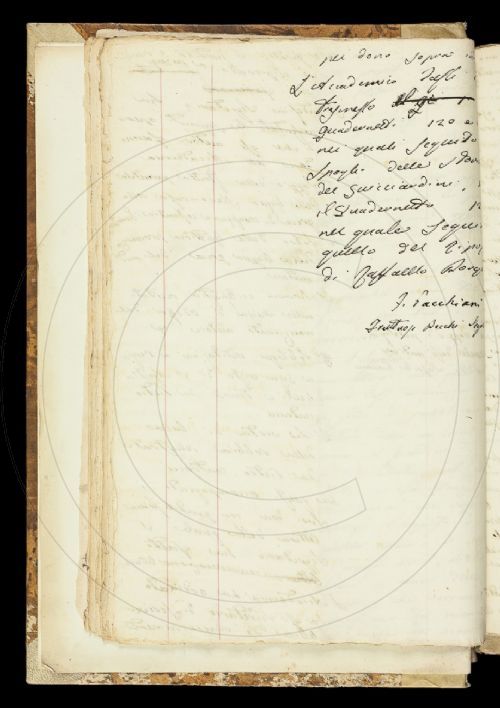 per dono sopra
L'Accademico
trasmesso il gi
quadernetti 120 e
nei quali seguito
Spogli delle Stor
del Guicciardini,
il Quadernetto 12
nel quale segui
quello del Ripos
di Raffaello Borg
F. Pacchiani